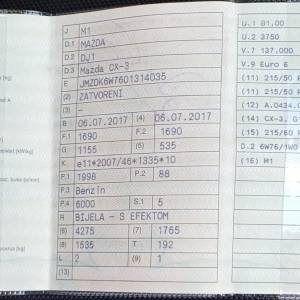 [kg]
J M1
D.1 MAZDA
D.2 DJ1
D.3 Mazda CX-3
E JMZDK6W7601314035
(2) ZATVORENI
(3) –
B 06.07.2017 (4) 06.07.2017
F.1 1690 F.2 1690
G 1155 (5) 535
K e11*2007/46*1335*10
P.1 1998 P.2 88
P.3 Benzin
P.4 6000 S.1 5
R BIJELA - S EFEKTOM
(6) 4275 (7) 1765
(8) 1535 T 192
L 2 (9) 1
(13)
U.1 81.00
U.2 3750
V.7 137.000
V.9 Euro 6
(11) 215/50
(11) 215/60
(12) A.0434.
(14) CX-3, G
(15) 215/50 R
D.2 6W76/1WO
(16) M1